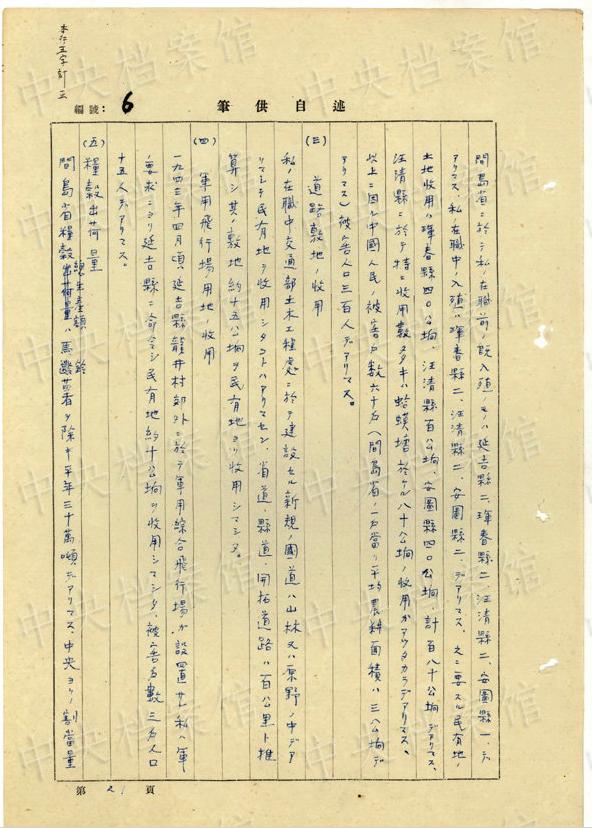 本行五字訂正
編號: 6
筆供自述
間島省ニ於テ私ノ在職前ノ既入殖ノモノハ延吉縣二、琿春縣二、汪清縣二、安圖縣一、デ
アリマス、私ノ在職中ノ入殖ハ琿春縣二、汪清縣二、安圖縣二、デアリマス、之ニ要スル民有地ノ
土地收用ハ琿春縣四〇公垧、汪清縣百公垧、安圖縣四〇公垧計百八十公垧デアリマス、
汪清縣ニ於テ特ニ收用數タタキハ蛤蟆塘於ケル八十公垧ノ收用ガアツタカラデアリマス。
以上ニ因ル中國人民ノ被害戶數六十戶(間島省ノ一戶當リ平均農耕面積ハ三公垧デ
アリマス)被害人口三百人デアリマス。
(三) 道路敷地ノ收用
私ノ在職中交通部土木工程處ニ於テ建設セル新規ノ國道ハ山林又ハ原野ノ中デア
リマシテ民有地ヲ收用シタコトハアリマセン、省道、縣道、開拓道路ハ百公里ト推
算シ其ノ敷地約十五公垧ヲ民有地ヨリ收用シマシタ。
(四) 軍用飛行場用地ノ收用
一九四三年四月頃、延吉縣龍井村郊外ニ於テ軍用綜合飛行場ガ設置サレ私ハ軍
ノ要求ニヨリ延吉縣ニ命令シ民有地約十公垧ヲ收用シマシタ、被害戶數三戶人口
十五人デアリマス。
(五) 糧穀出荷量
間島省糧穀總生產額ハ馬鈴薯ヲ除キ平年三十萬噸デアリマス、中央ヨリノ割當量
第 21 頁